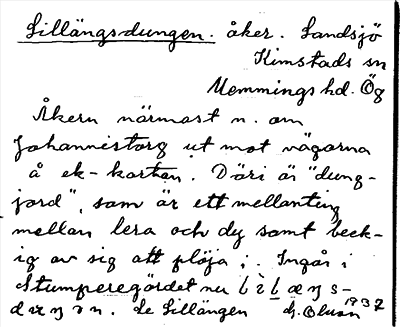 Lillängsdungen. åker. Landsjö
Kimstads sn
Memmings hd. Ög
Åkern närmast n. om
Johannistorg ut mot vägarna
å ek-kartan. Däri är "dung-
jord", som är ett mellanting
mellan lera och dy samt beck-
ig av sig att plöja i. Ingår i
Stumperegärdet nu
Se Lillängen G. Olson 1932